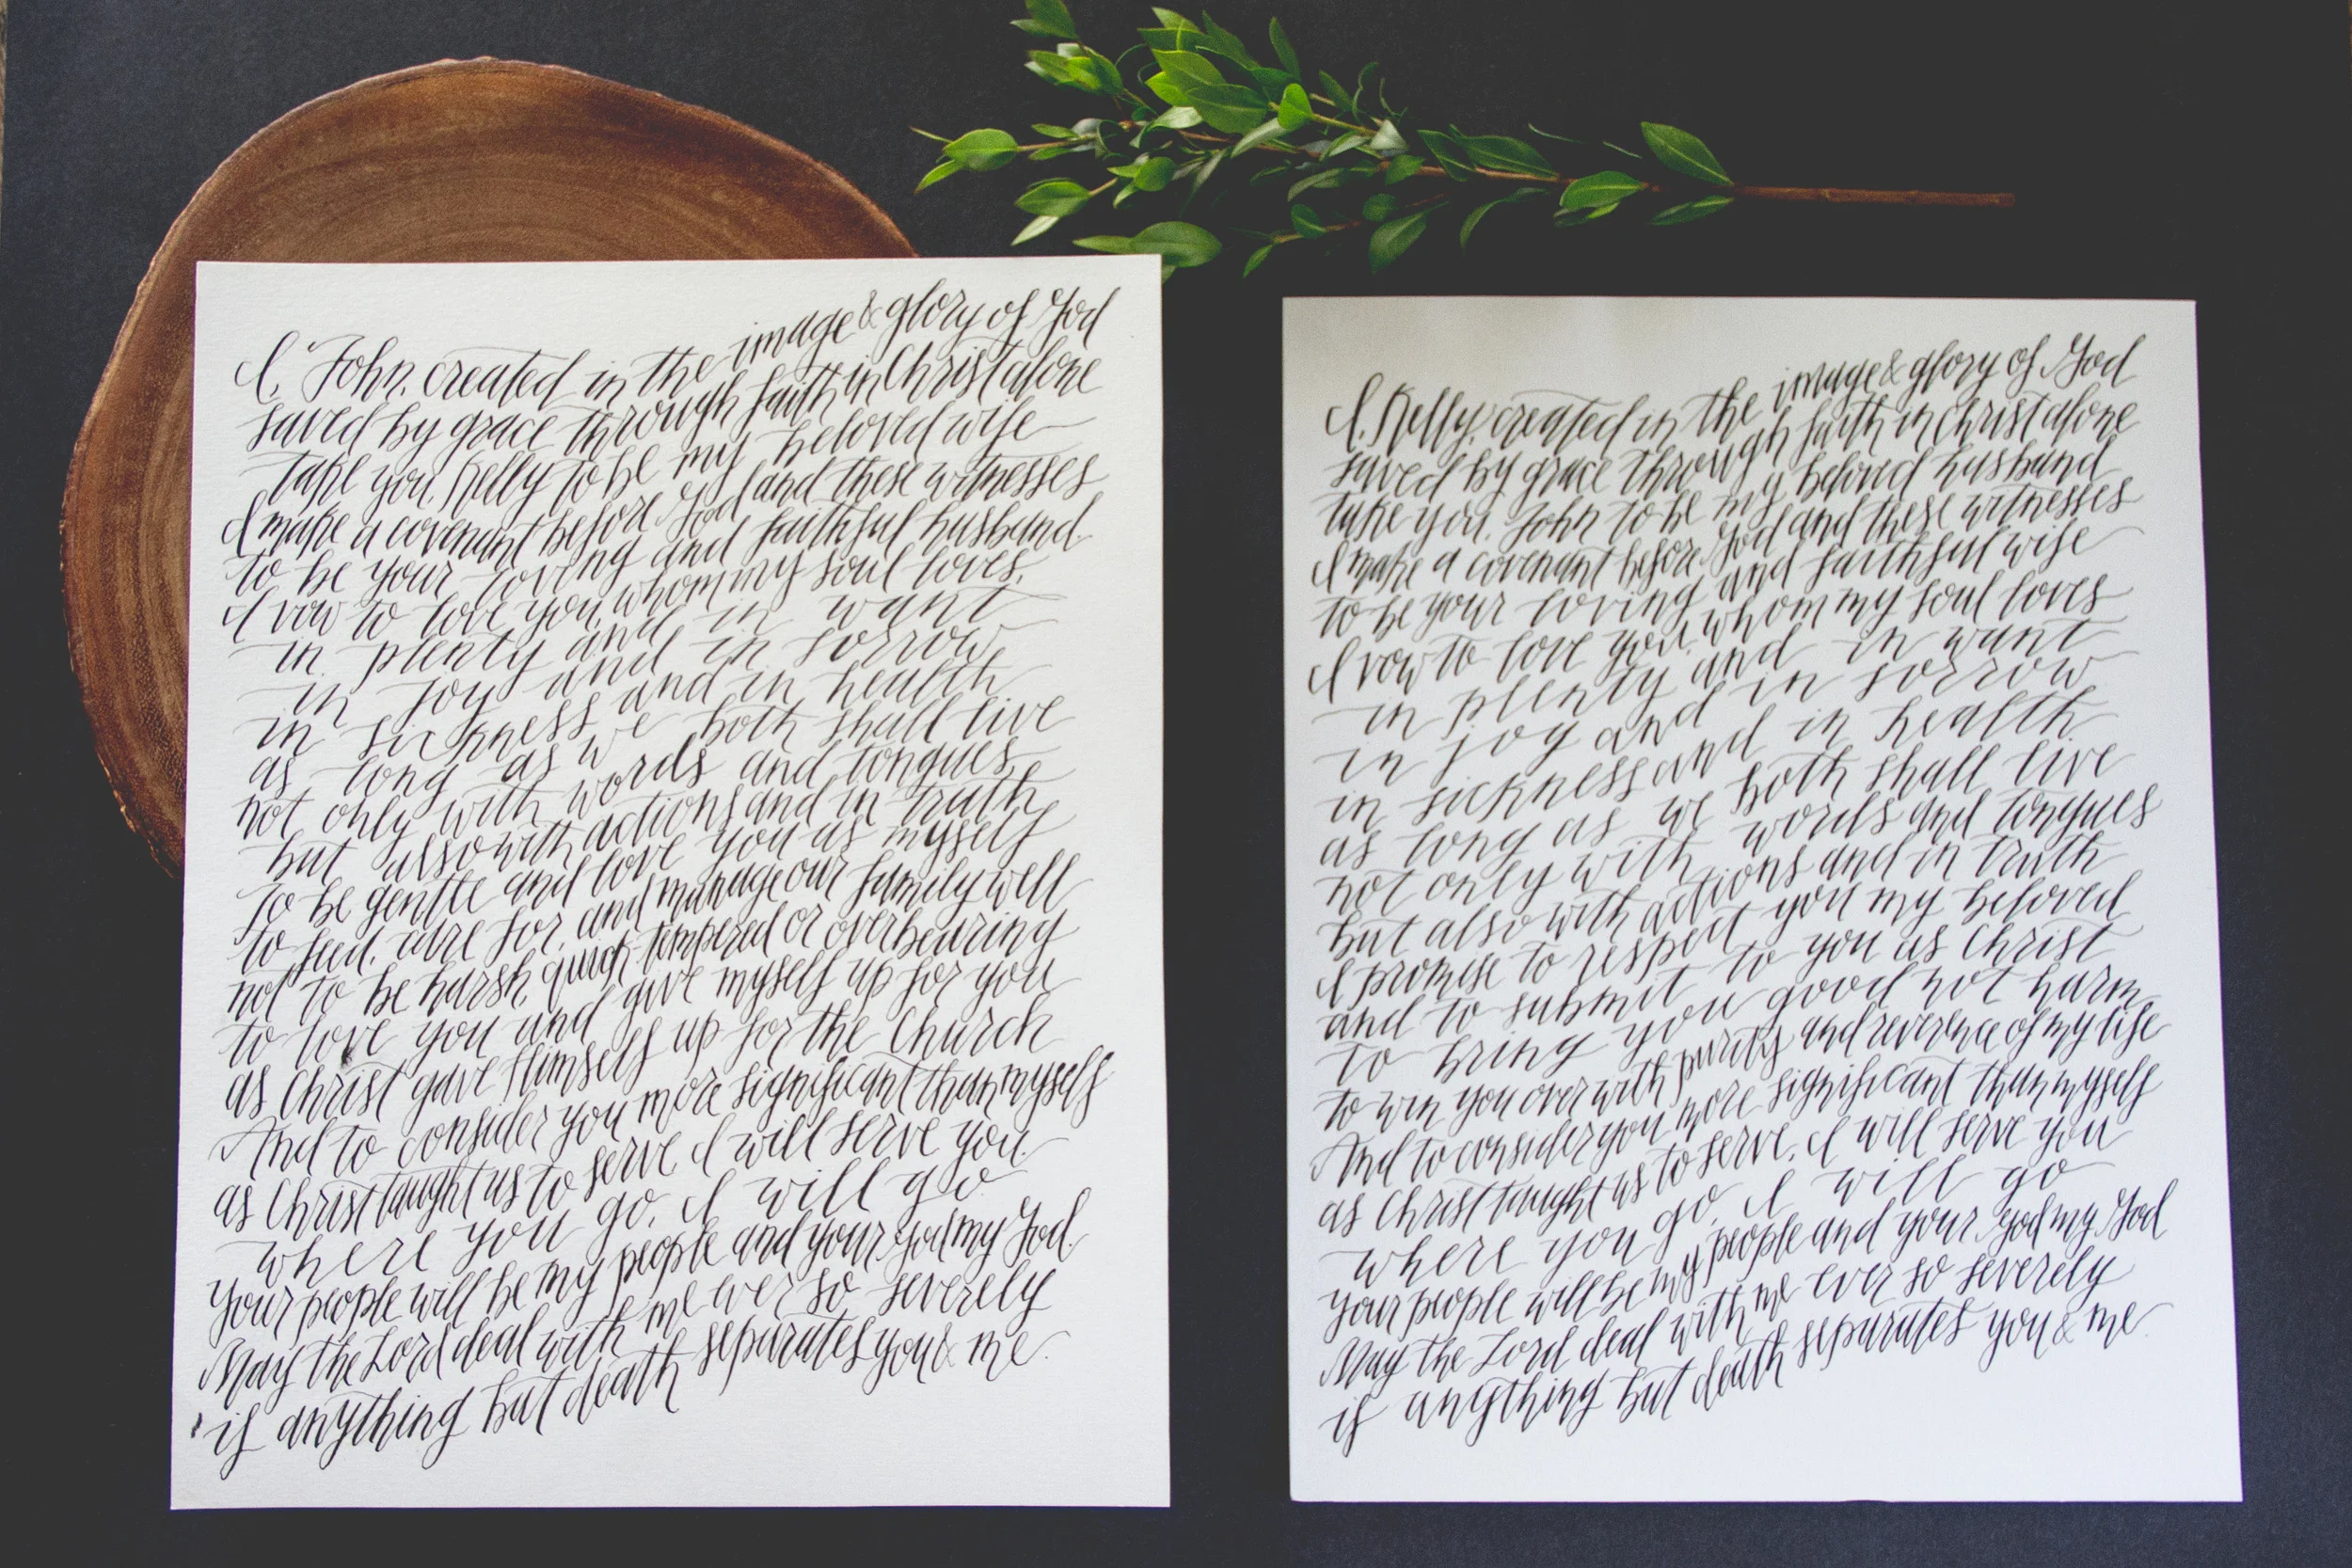 I, John, created in the image & glory of God
saved by grace through faith in Christ alone
take you, Kelly to be my beloved wife
I make a covenant before God and these witnesses
to be your loving and faithful husband
I vow to love you, whom my soul loves,
in plenty and in want
in joy and in sorrow
in sickness and in health
as long as we both shall live
not only with words and tongues
but also with actions and in truth
to be gentle and love you as myself
to feed, care for, and manage our family well
not to be harsh, quick tempered or overbearing
to love you and give myself up for you
as Christ gave Himself up for the Church
And to consider you more significant than myself
as Christ taught us to serve, I will serve you
where you go, I will go
your people will be my people and your God my God.
May the Lord deal with me ever so severely
if anything but death separates you & me.
I, Kelly, created in the image & glory of God
saved by grace through faith in Christ alone
take you, John to be my beloved husband
I make a covenant before God and these witnesses
to be your loving and faithful wife
I vow to love you, whom my soul loves
in plenty and in want
in joy and in sorrow
in sickness and in health
as long as we both shall live
not only with words and tongues
but also with actions and in truth
I promise to respect you my beloved
and to submit to you as Christ
to bring you good not harm,
to win you over with purity and reverence of my life
And to consider you more significant than myself
as Christ taught us to serve, I will serve you
where you go, I will go
your people will be my people and your God my God
May the Lord deal with me ever so severely
if anything but death separates you & me.